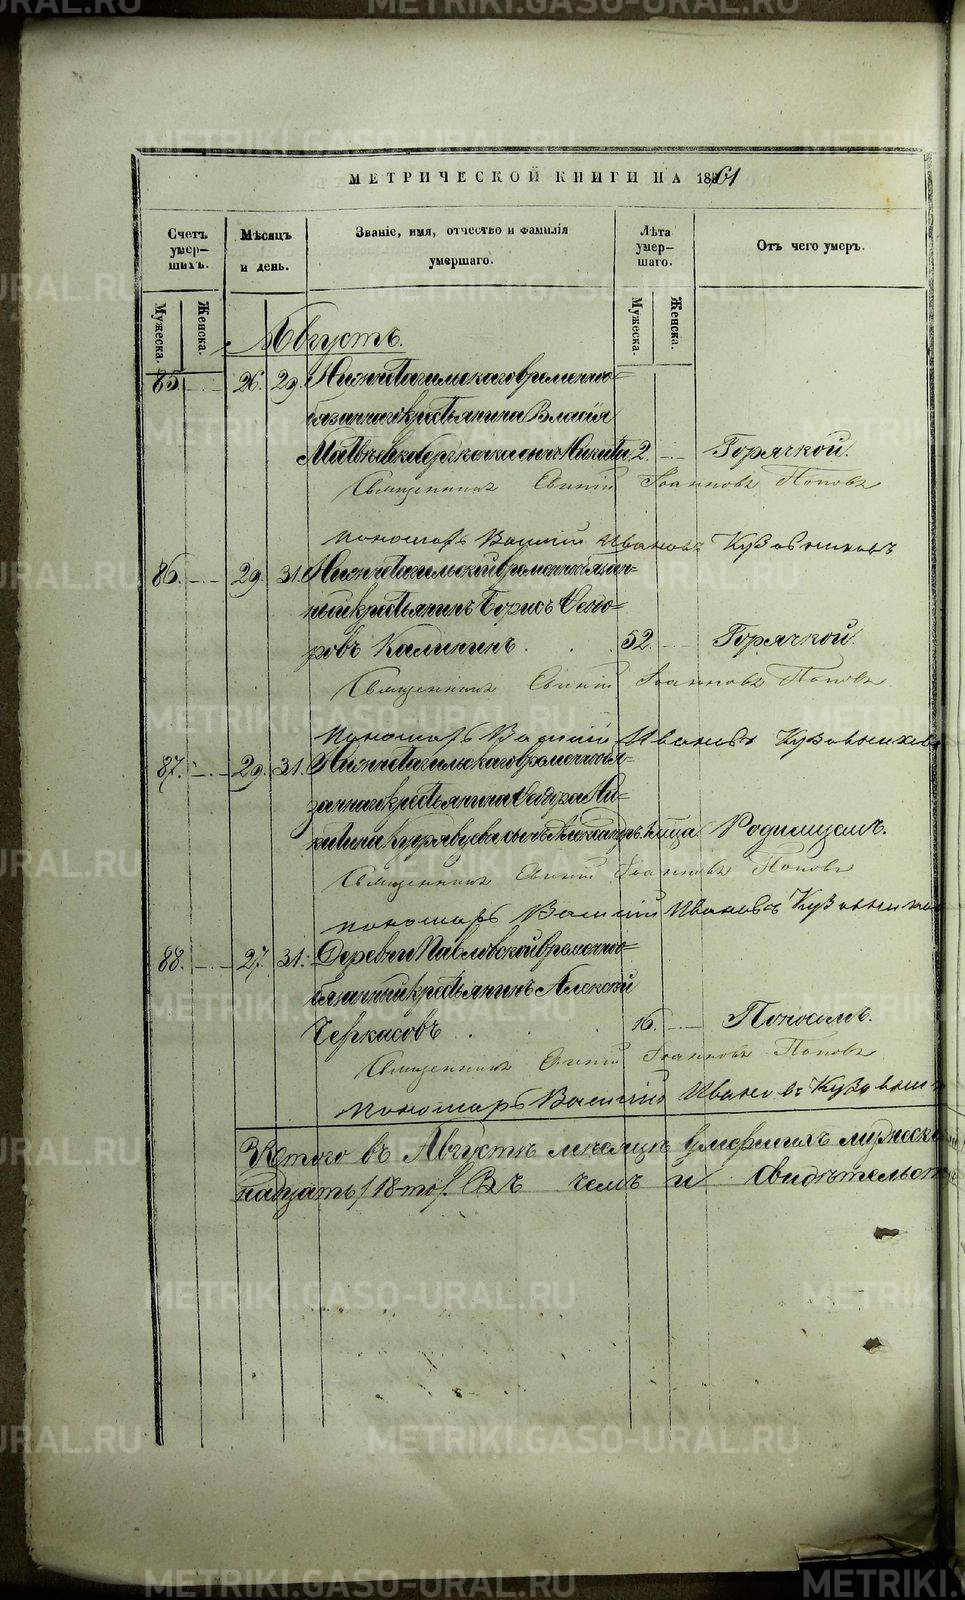 METRIKI.GASO-URAL.RU
МЕТРИЧЕСКОЙ КНИГИ НА 1861
Счетъ умер-шихъ.
Мѣсяцъ и день.
Званіе, имя, отчество и фамилія умершаго.
Лѣта умер-шаго.
Отъ чего умеръ.
Мужеска.
Женска.
Мужеска.
Женска.
Августъ.
85. 26. 29. Нижнетагильскаго временно-
бязаннаго крестьянина Власія
сынъ Никита 2. Горячкой.
Священникъ Іоанновъ Поповъ
пономарь Василій Ивановъ Кузовниковъ
86. 29. 31. Нижнетагильскій временнообязан-
ный крестьянинъ Борисъ Ѳедо-
ровъ Калининъ. 52. Горячкой.
Священникъ Іоанновъ Поповъ
пономарь Василій Ивановъ Кузовников
87. 29. 31. Нижнетагильскаго временнообя-
заннаго крестьянина Ѳедора Ни-
китина Кудрявцева сынъ Александръ Родимцемъ.
Священникъ Іоанновъ Поповъ
пономарь Василій Ивановъ Кузовников
88. 27. 31. Деревни Павловской временно-
бязанный крестьянинъ Алексѣй
Черкасовъ 16. Поносомъ.
Священникъ Іоанновъ Поповъ
пономарь Василій Ивановъ Кузовник
Итого въ Августѣ мѣсяцѣ умершихъ мужеска
надцать /18-ть/. Въ чемъ и свидѣтельст